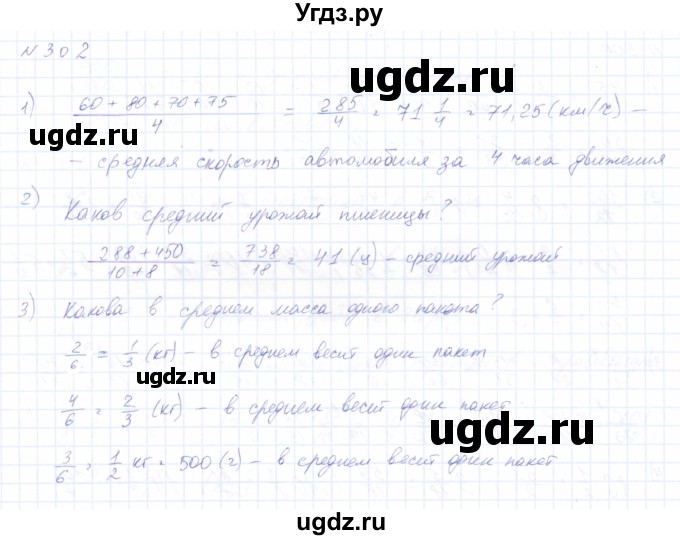 Угдз.ру
№302
1) 60+80+70+75/4 = 285/4 = 71 1/4 = 71,25 (км/ч) –
– средняя скорость автомобиля за 4 часа движения
2) Каков средний урожай пшеницы?
288+450/10+8 = 738/18 = 41 (ц) – средний урожай
3) Какова в среднем масса одного пакета?
2/6 = 1/3 (кг) – в среднем весит один пакет
4/6 = 2/3 (кг) – в среднем весит один пакет
3/6 = 1/2 кг = 500 (г) – в среднем весит один пакет
ugdz.ru
ugdz.ru
ugdz.ru
ugdz.ru
ugdz.ru
ugdz.ru
ugdz.ru
ugdz.ru
ugdz.ru